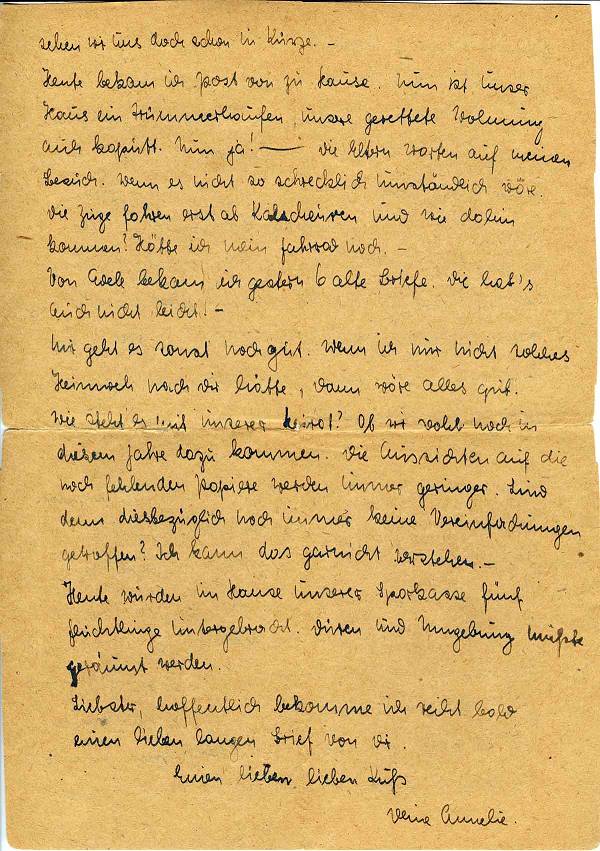 sehen wir uns doch schon in Kürze. –
Heute bekam ich Post von zu Hause. Nun ist unser
Haus ein Trümmerhaufen, unsere gerettete Wohnung
auch kaputt. Nun ja! — Die Eltern warten auf meinen
Besuch. Wenn es nicht so schrecklich umständlich wäre.
Die Züge fahren erst ab Kalscheuren und wie dahin
kommen? Hätte ich mein Fahrrad noch. –
Von bekam ich gestern 6 alte Briefe. Die hat's
auch nicht leicht. –
Mir geht es sonst noch gut. Wenn ich nur nicht solches
Heimweh nach dir hätte, dann wäre alles gut.
Wie steht es mit unserer Heirat? Ob wir wohl noch in
diesem Jahre dazu kommen. Die Aussichten auf die
noch fehlenden Papiere werden immer geringer. Sind
denn diesbezüglich noch immer keine Vereinfachungen
getroffen? Ich kann das garnicht verstehen. –
Heute wurden im Hause unserer Sparkasse fünf
Flüchtlinge untergebracht. Düren und Umgebung mußte
geräumt werden.
Liebster, hoffentlich bekomme ich recht bald
einen lieben langen Brief von dir.
Einen lieben, lieben Kuß
Deine Annelie.